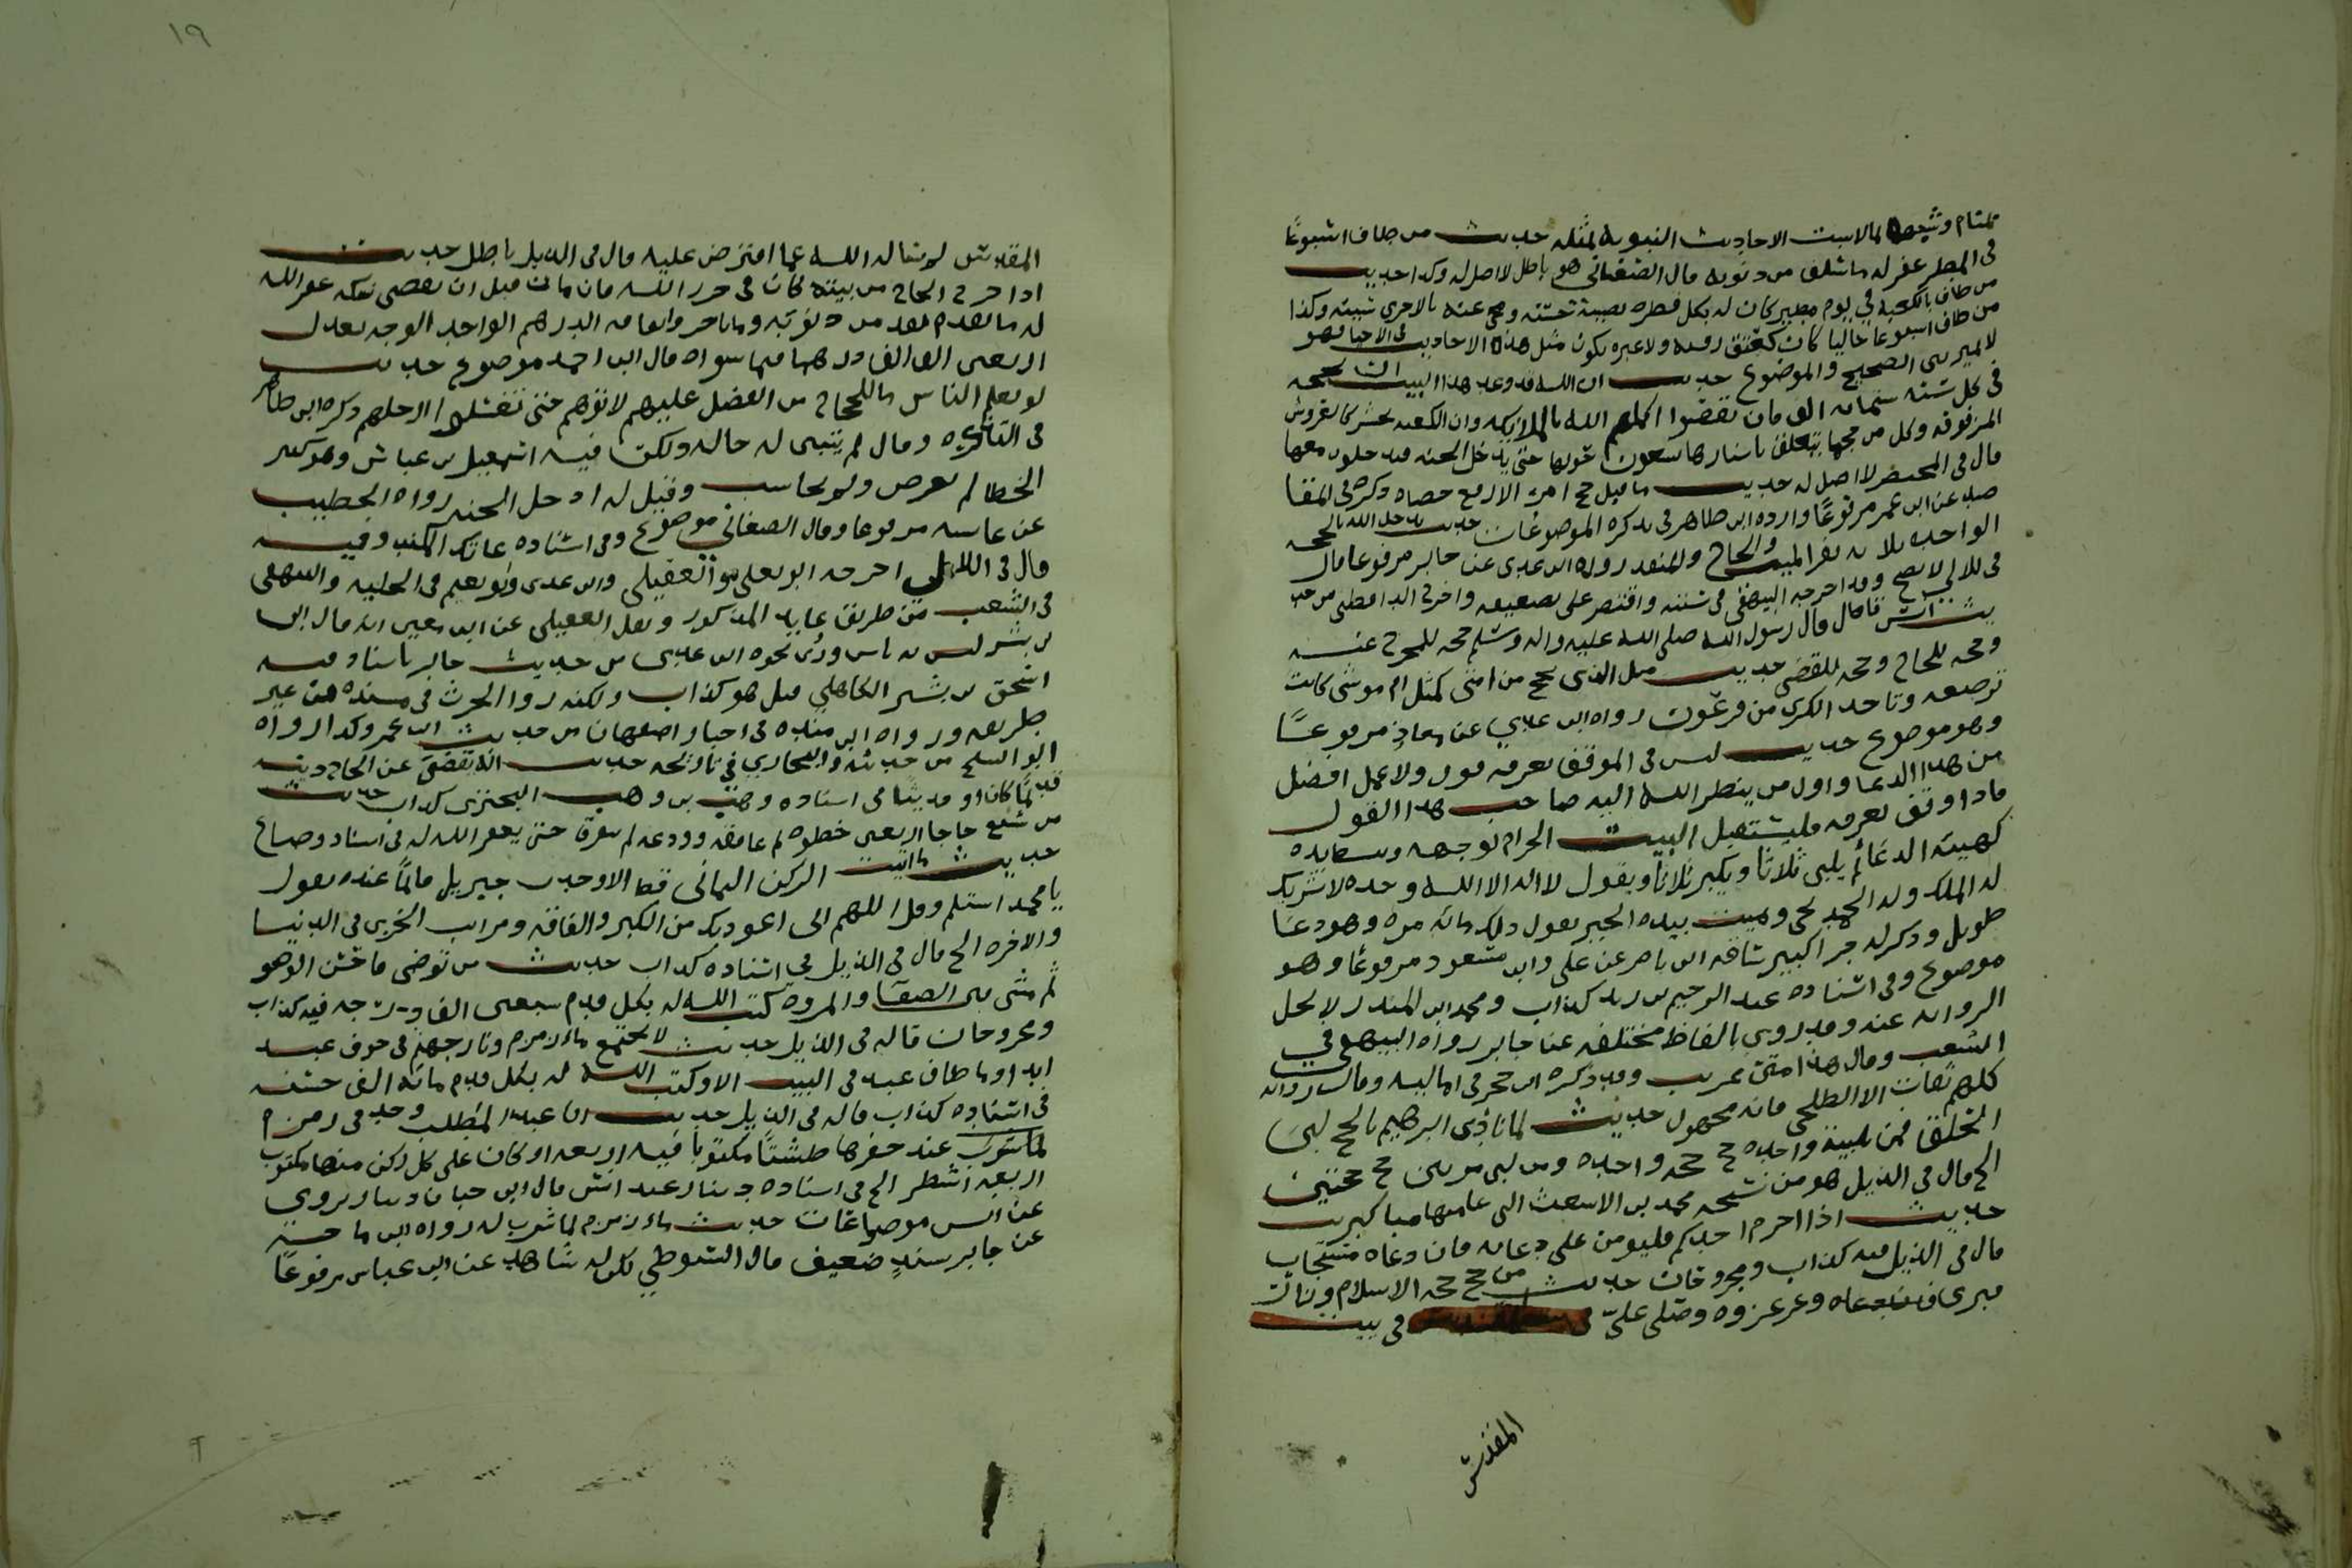 في المطر غفر له ما سلف من ذنوبه قال الصغاني هو باطل لا اصل له وكذا حديث
من طاف بالكعبة في يوم مطير كان له بكل قطرة تصيبه حسنة ومحي عنه بالاخرى سيئة وكذا
من طاف اسبوعا خاليا كان كعتق رقبة ولا عبره بكون مثل هذه الاحاديث في الاحيا فهو
لا يميز بين الصحيح والموضوع حديث ان الله قد وعد هذا البيت ان يحجه
في كل سنة ستمائة الف فان نقصوا اكملهم الله بالملائكة وان الكعبة تحشر كالعروس
المزفوفة وكل من حجها يتعلق باستارها يسعون حولها حتى يدخل الجنة فيدخلون معها
قال في المختصر لا اصل له حديث ما قبل حج امرء الا رفع حصاه ذكره في المقا
صد عن ابن عمر مرفوعا وارده ابن طاهر في تذكرة الموضوعات حديث يدخل الله بالحجة
الواحدة ثلاثة نفر الميت والحاج والمنفذ رواه ابن عدي عن جابر مرفوعا قال
في اللالي لا يصح وقد اخرجه البيهقي في سننه واقتصر على تضعيفه واخرج الدارقطني من حد
يث انس قال قال رسول الله صلى الله عليه واله وسلم حجة للمحجوج عنه
وحجة للحاج وحجة للمقضي حديث مثل الذي يحج من امتي كمثل ام موسى كانت
ترضعه وتاخذ الكرى من فرعون رواه ابن عدي عن معاذ مرفوعا
وهو موضوع حديث ليس في الموقف بعرفة قول ولا عمل افضل
من هذا الدعا واول من ينظر الله اليه صاحب هذا القول
فاذا وقف بعرفة فليستقبل البيت الحرام بوجهه ويبسط يده
كهيئة الداعي ثم يلبي ثلاثا ويكبر ثلاثا ويقول لا اله الا الله وحده لا شريك
له الملك وله الحمد يحي ويميت بيده الخير يقول ذلك مائة مرة وهو دعا
طويل وذكر له جرا كبير ساقه ابن ناصر عن علي وابن مسعود مرفوعا وهو
موضوع وفي اسناده عبد الرحيم بن زيد كذاب ومحمد بن المنذر لا يحل
الرواية عنه وقد روي بالفاظ مختلفة عن جابر رواه البيهقي في
الشعب وقال هذا متن غريب وقد ذكره ابن حجر في اماليه وقال رواته
كلهم ثقات الا الطلحي فانه مجهول حديث لما نادى ابراهيم بالحج لبى
الخلق فمن لبى تلبية واحدة حج حجة واحدة ومن لبى مرتين حج حجتين
الخ قال في الذيل هو من نسخة محمد بن الاشعث التي عامتها مناكير
حديث اذا احرم احدكم فليومن على دعائه فان دعاه مستجاب
قال في الذيل فيه كذاب ومجروحان حديث من حج حجة الاسلام وزار
قبري وغزا غزوة وصلى علي في بيت
المقدس
١٩
المقدس لم يساله الله عما افترض عليه قال في الذيل باطل حديث
اذا خرج الحاج من بيته كان في حرز الله فان مات قبل ان يقضي نسكه غفر الله
له ما تقدم من ذنوبه وما تاخر وانفاقه الدرهم الواحد الوجه يعدل
اربعين الف الف درهما فيما سواه قال ابن احمد موضوع حديث
لو يعلم الناس ما للحجاج من الفضل عليهم لاتوهم حتى تغسلوا ارجلهم ذكره ابن طاهر
في التذكرة وقال لم يتبين له حاله ولكن فيه اسمعيل بن عياش وهو كثير
الخطا لم يعرض ولم يحاسب وقيل له ادخل الجنة رواه الخطيب
عن عائشة مرفوعا وقال الصغاني موضوع وفي اسناده عائذ المكتب وفيه
قال في اللالي اخرجه ابو يعلى والعقيلي وابن عدي وابو نعيم في الحلية والبيهقي
في الشعب من طريق عايذ المذكور ونقل العقيلي عن ابن معين انه قال ابن
بن بشر ليس به باس وروى نحوه ابن عدي من حديث جابر باسناد فيه
اسحق بن بشر الكاهلي قيل هو كذاب ولكنه روا الحرث في مسنده من غير
طريقه ورواه ابن منده في اخبار اصفهان من حديث ابن عمر وكذا رواه
ابو الشيخ من حديثه والبخاري في تاريخه حديث انه يقضى عن الحاج دينه
قديما كان او حديثا في اسناده وهب بن وهب البختري كذاب حديث
من شيع حاجا اربعين خطوة ثم عانقه وودعه لم يتفرق حتى يغفر الله له في اسناده وضاع
حديث ما اتيت الركن اليماني قط الا وجدت جبريل قائما عنده يقول
يا محمد استلم وقل اللهم اني اعوذ بك من الكبر والفاقة ومراتب الخزي في الدنيا
والاخرة الخ قال في الذيل في اسناده كذاب حديث من توضى فاحسن الوضو
ثم مشى بين الصفا والمروة كتب الله له بكل قدم سبعين الف درجة فيه كذاب
ومجروحان قاله في الذيل حديث لا يجتمع ماء زمزم ونار جهنم في جوف عبد
ابدا وما طاف عبد في البيت الا وكتب الله له بكل قدم مائة الف حسنة
في اسناده كذاب قاله في الذيل حديث ان عبد المطلب وجد في زمزم
عند حفرها طستا مكتوبا فيه اربعة اركان على كل ركن منها مكتوب
اربعة اسطر الخ في اسناده دينار عبد انس قال ابن حبان دينار يروي
عن انس موضوعات حديث ماء زمزم لما شرب له رواه ابن ماجه
عن جابر بسند ضعيف قال السيوطي لكن له شاهد عن ابن عباس مرفوعا